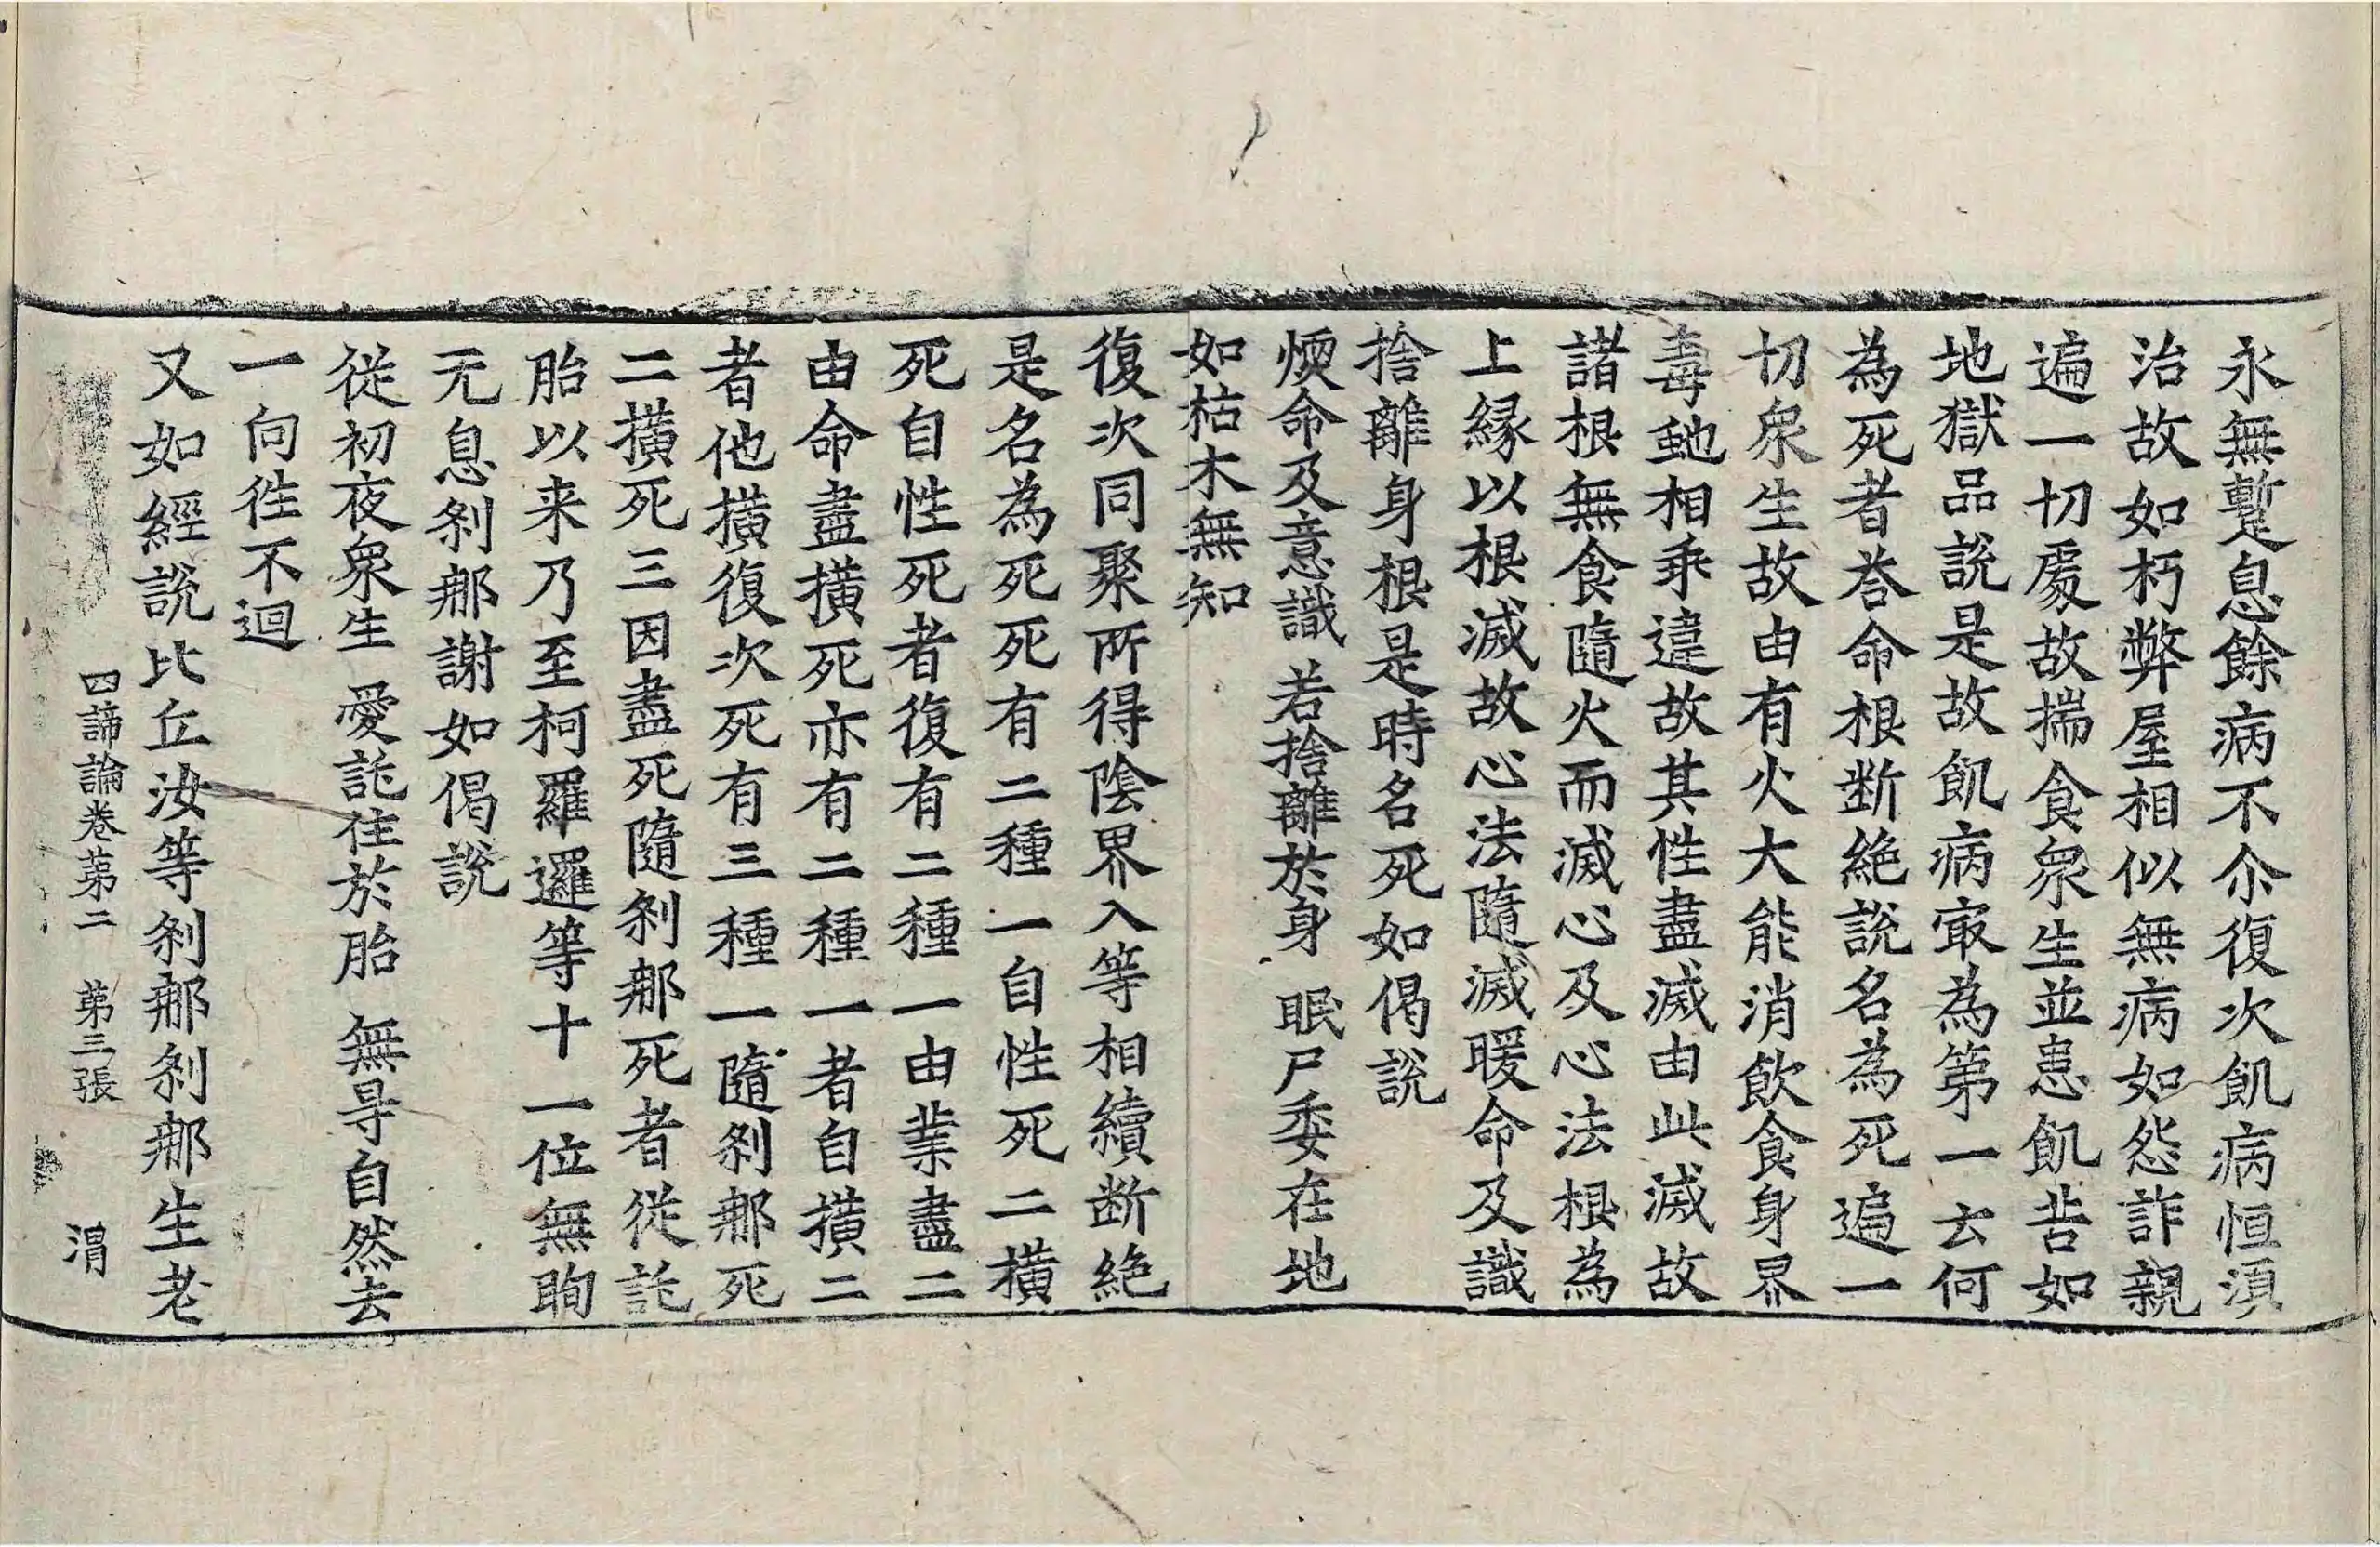 永無暫息餘病不尒復次飢病恒湏
治故如朽弊屋相似無病如怨詐親
遍一切處故揣食衆生並患飢苦如
地獄品說是故飢病㝡為第一云何
為死者荅命根断絶說名為死遍一
切衆生故由有火大能消飲食身界
毒虵相乖違故其性盡滅由此滅故
諸根無食隨火而滅心及心法根為
上緣以根滅故心法隨滅暖命及識
捨離身根是時名死如偈說
煗命及意識 若捨離於身 眠尸委在地
如枯木無知
復次同聚所得陰界入等相續断絶
是名為死死有二種一自性死二撗
死自性死者復有二種一由業盡二
由命盡撗死亦有二種一者自撗二
者他撗復次死有三種一隨刹那死
二撗死三因盡死隨刹那死者從託
胎以来乃至柯羅邏等十一位無眴
无息刹那謝如偈說
從初夜衆生 愛託住於胎 無㝵自然去
一向徃不迴
又如經說比丘汝等刹那刹那生老
四諦論卷苐二 苐三張 渭